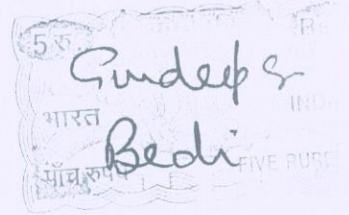 5 रु.
Gurdeep S
भारत
INDI
Bedi
पाँच रुपये
FIVE RUPE